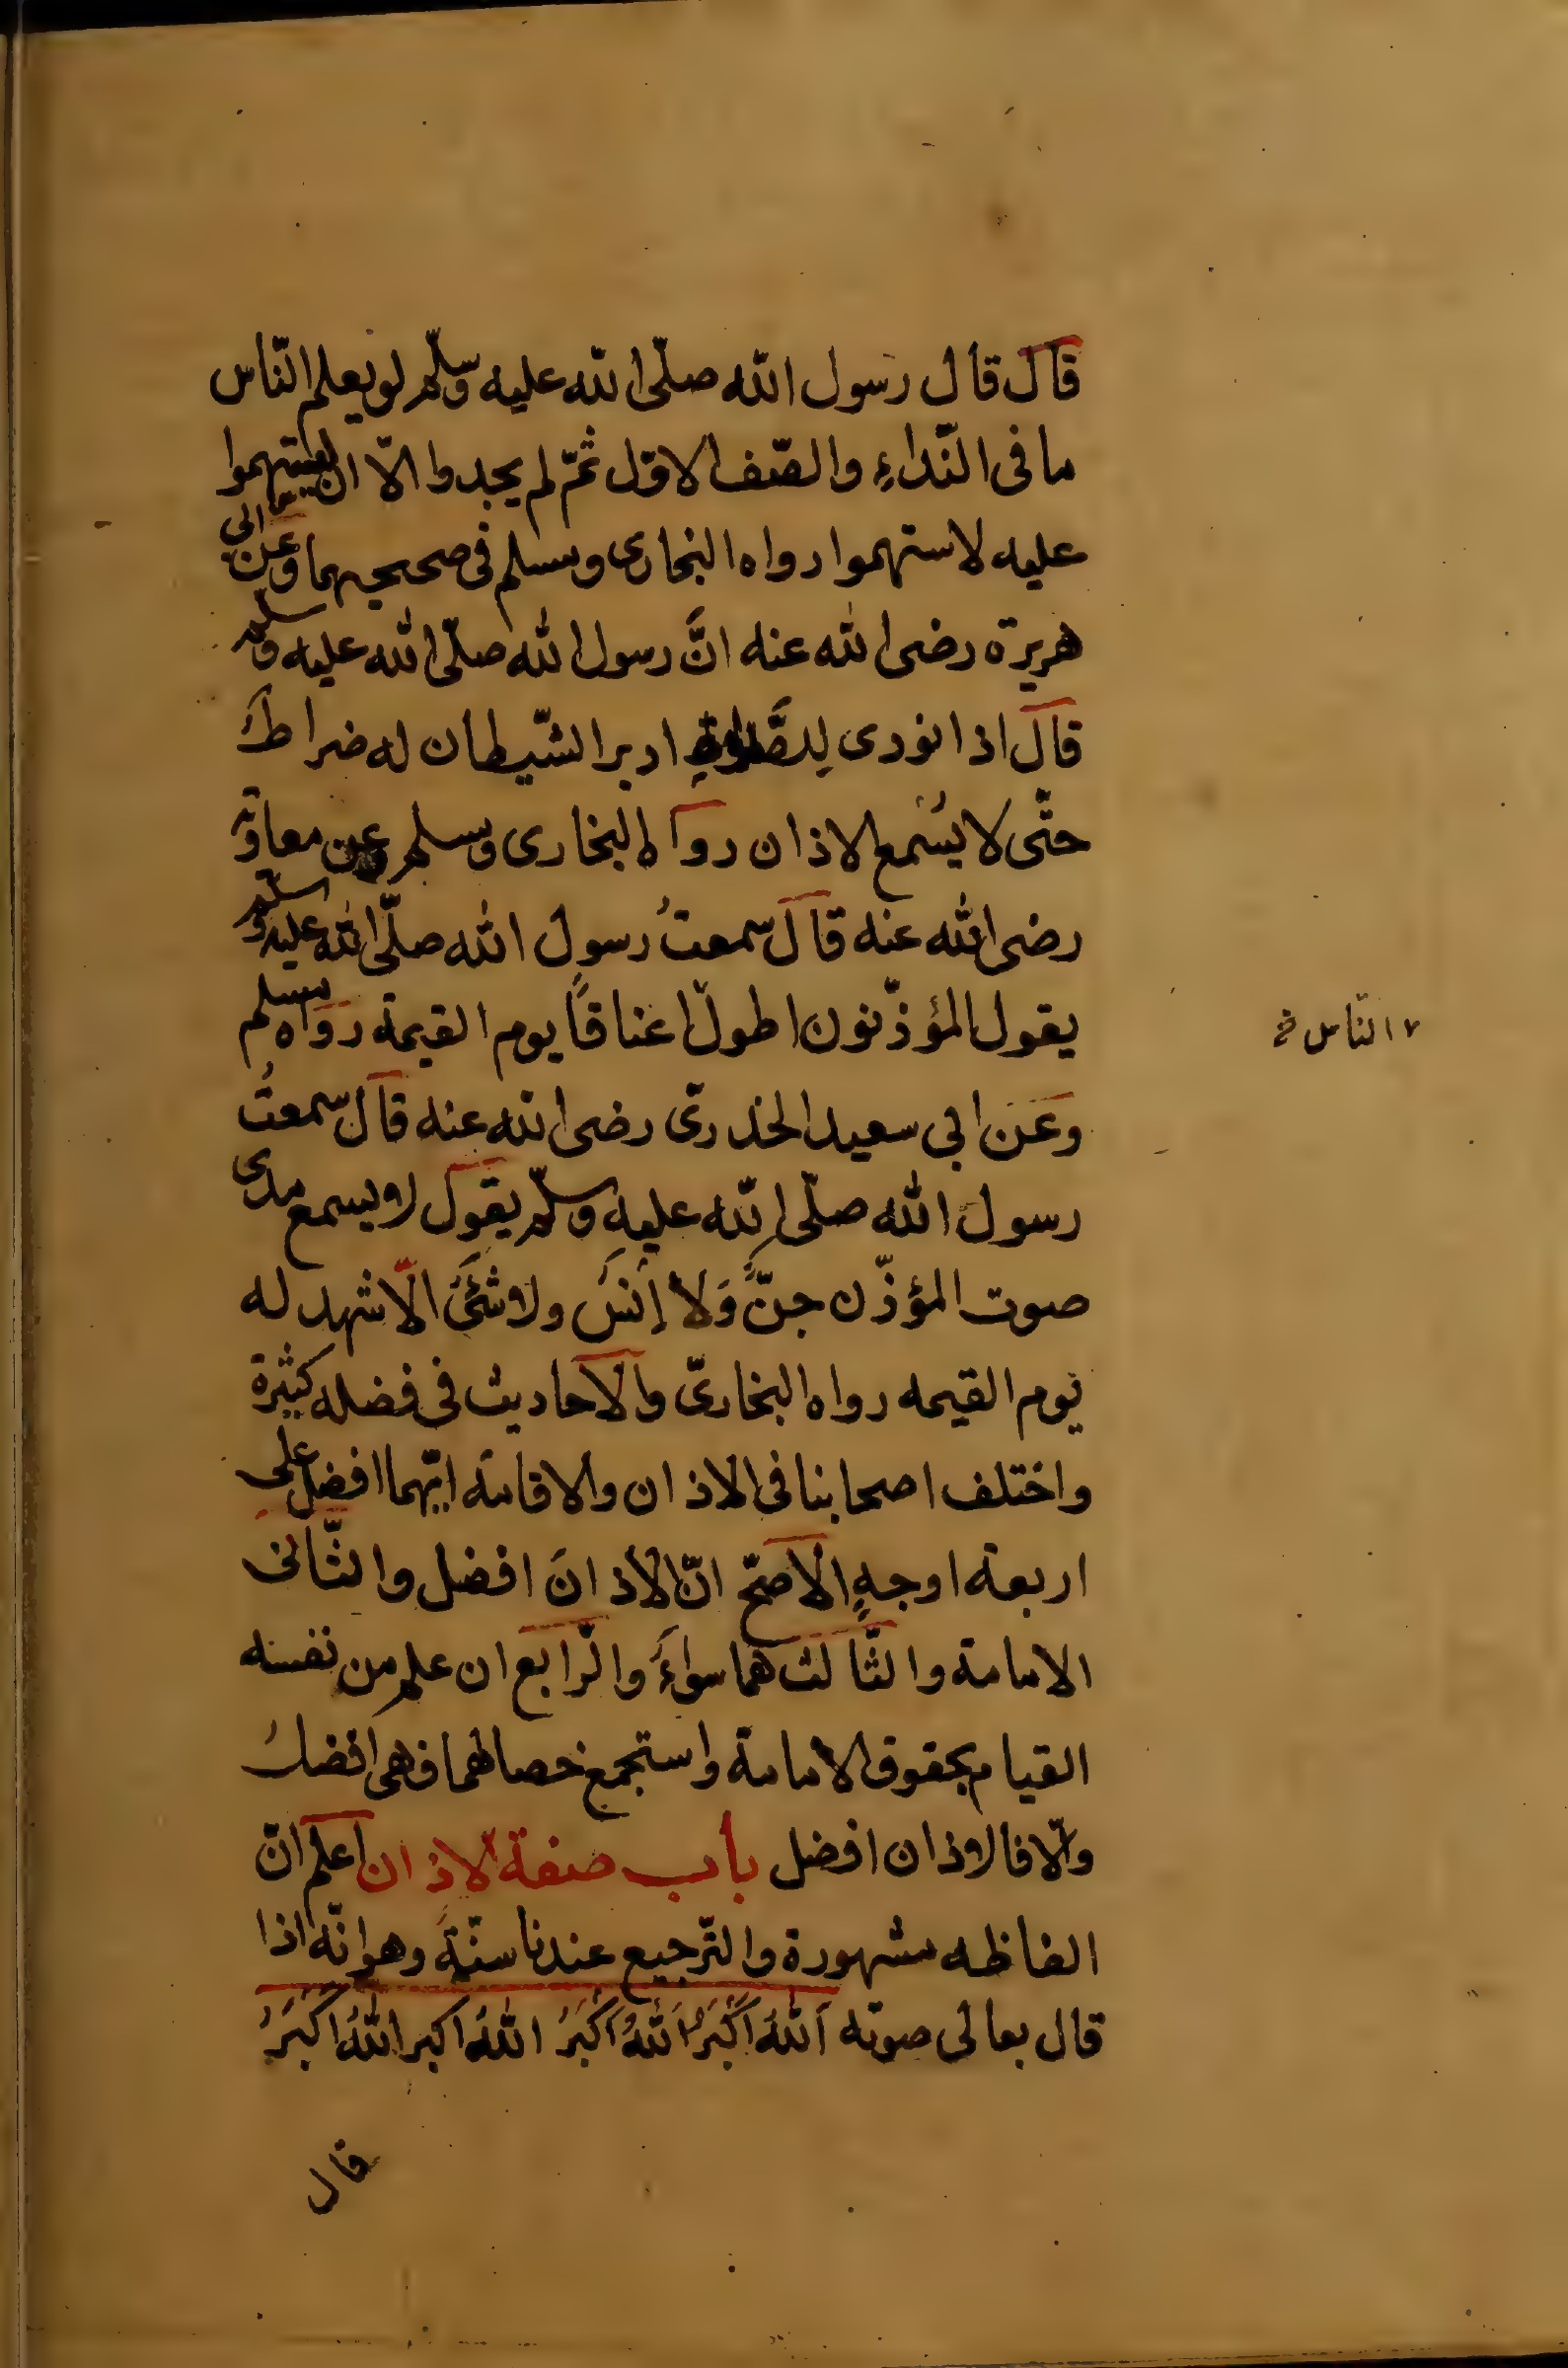 قال قال رسول الله صلّى الله عليه وسلّم لو يعلم النّاس
ما فى النّداءِ والصّف الاوّل ثمّ لم يجدوا الّا ان يستهموا
عليه لاستهموا رواه البخارى ومسلم فى صحيحيهما وعن ابى
هريرة رضى الله عنه انَّ رسول الله صلّى الله عليه وسلم
قال اذا نودى لِلصَّلوةِ ادبر الشّيطان له ضراطٌ
حتّى لا يسُمع الاذان رواه البخارى ومسلم وعن معاوية
رضى الله عنه قال سمعتُ رسول الله صلّى الله عليه وسلم
يقول المؤذّنون اطول اعناقًا يوم القيمة رواه مسلم
٧ النّاس
وعن ابى سعيد الخدرىّ رضى الله عنه قال سمعتُ
رسول الله صلّى الله عليه وسلّم يقول لا يسمع مدى
صوت المؤذّن جنٌّ وَلا اِنسٌ ولا شئٌ الّا شهد له
يوم القيمه رواه البخارىّ والاحاديث فى فضله كثيرة
واختلف اصحابنا فى الاذان والاقامة ايّهما افضل على
اربعة اوجهٍ الاصحّ انّ الأذانَ افضل والثّانى
الامامة والثّالث هما سواءٌ والرّابع ان علم من نفسه
القيام بحقوق الامامة واستجمع خصالهما فهى افضلُ
والّا فالاذان افضل باب صفة الاذان اعلم انّ
الفاظه مشهورة والتّرجيع عندنا سنّةٌ وهو انّه اذا
قال بعالى صوته اَللهُ اَكْبَرُ اَللهُ اَكْبَرُ اللهُ اكبر اللهُ اكْبَرُ
قال